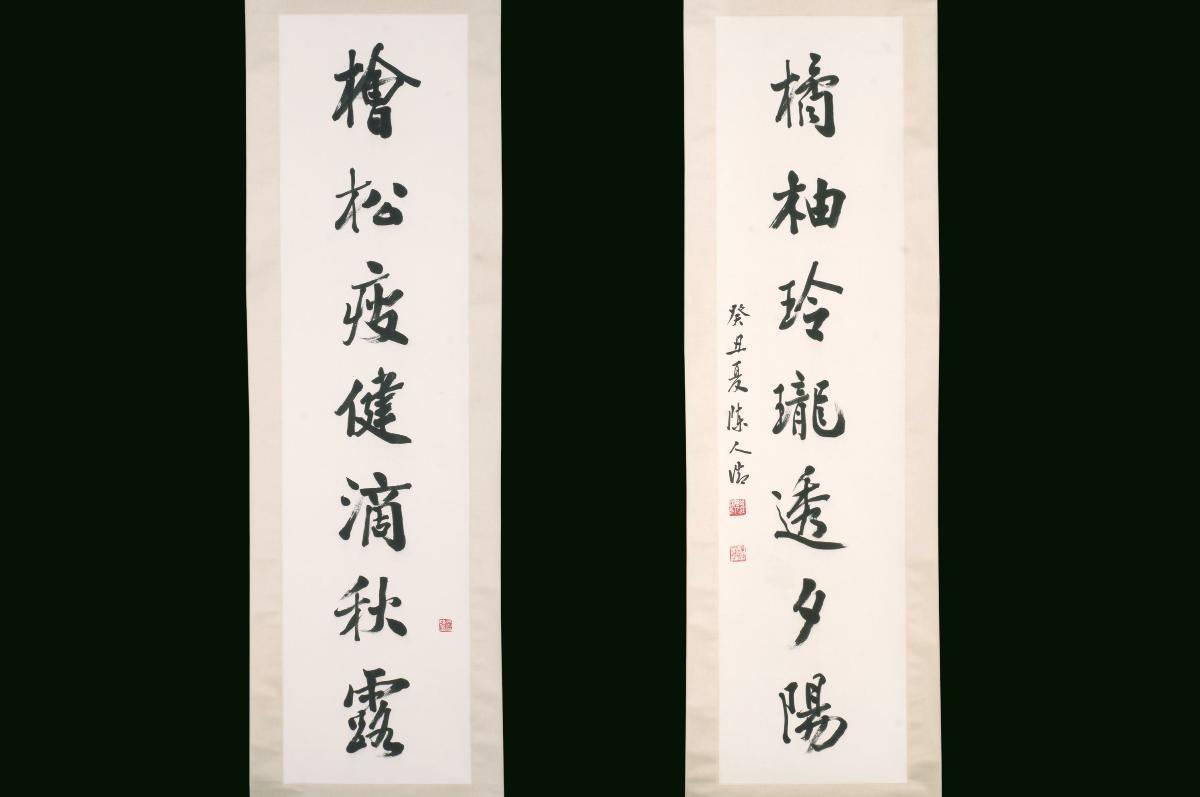 檜松瘦健滴秋露
橘柚玲瓏透夕陽
癸丑夏陳人浩